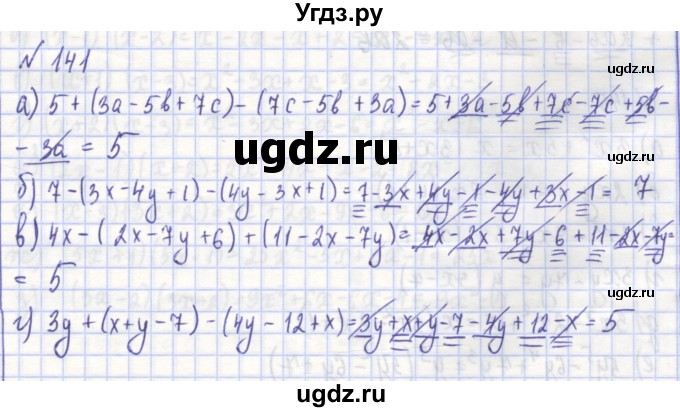 Угдз.ру
№ 141
а) 5 + (3a - 5в + 7с) - (7с - 5в + 3a) = 5 + 3a - 5в + 7с - 7с + 5в -
- 3a = 5
б) 7 - (3x - 4y + 1) - (4y - 3x + 1) = 7 - 3x + 4y - 1 - 4y + 3x - 1 = 7
в) 4x - (2x - 7y + 6) + (11 - 2x - 7y) = 4x - 2x + 7y - 6 + 11 - 2x - 7y =
= 5
г) 3y + (x + y - 7) - (4y - 12 + x) = 3y + x + y - 7 - 4y + 12 - x = 5
ugdz.ru
ugdz.ru
ugdz.ru
ugdz.ru
ugdz.ru
ugdz.ru
ugdz.ru
ugdz.ru